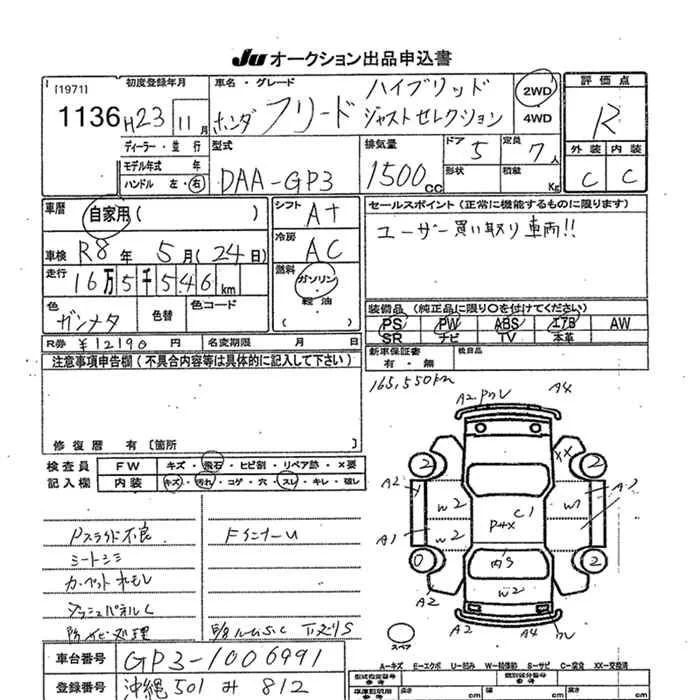 JU オークション出品申込書
[1971]
1136
初度登録年月
H23 11月
車名・グレード
ホンダ フリード
ハイブリッド
ジャストセレクション
2WD
4WD
評価点
R
外装 内装
C C
ディーラー・並行
モデル年式 年
ハンドル 左・右
型式
DAA-GP3
排気量
1500cc
ドア
5
定員
7人
形状
積載
Kg
車歴
自家用( )
車検 R8年 5月(24日)
走行
16万5千546km
色
ガンメタ
色替
色コード
シフト
AT
冷房
AC
燃料
ガソリン
軽油
( )
セールスポイント(正常に機能するものに限ります)
ユーザー買い取り車両!!
装備品(純正品に限り〇を付けてください)
PS PW ABS エアB AW
SR ナビ TV 本革
R券 ¥12190円 名変期限 月 日
新車保証書
有・無
後日品
注意事項申告欄(不具合内容等は具体的に記入して下さい)
修復歴 有〔箇所 〕
165,550km
検査員
記入欄
FW キズ・飛石・ヒビ割・リペア跡・X要
内装 キズ・汚れ・コゲ・穴・スレ・キレ・破レ
Pスライド不良
シートシミ
カーペット
ダッシュパネルC
防サビ処理
FインナーU
A2 A4
2 XX 2
A2 W2 C1 W1 A3
A1 W2 A1
0 2
W2
A2 A2 A4
スペア
A-キズ E-エクボ U-凹み W-補修跡 S-サビ C-腐食 XX-交換済
車台番号 GP3-1006991
登録番号 沖縄501み812
長さ cm 幅 cm 高さ cm